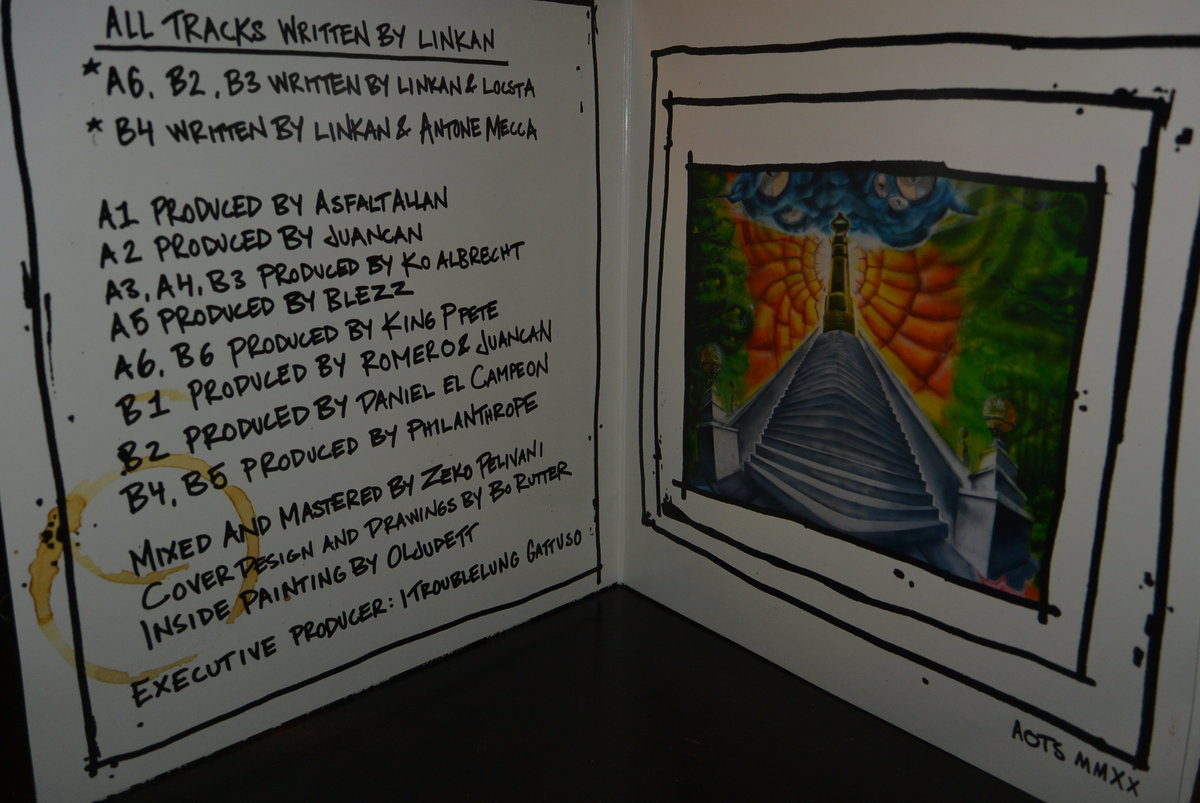 ALL TRACKS WRITTEN BY LINKAN
* A6, B2, B3 WRITTEN BY LINKAN & LOCSTA
* B4 WRITTEN BY LINKAN & ANTONE MECCA
A1 PRODUCED BY ASFALTALLAN
A2 PRODUCED BY JUANCAN
A3, A4, B3 PRODUCED BY KO ALBRECHT
A5 PRODUCED BY BLEZZ
A6, B6 PRODUCED BY KING PFETE
B1 PRODUCED BY ROMERO & JUANCAN
B2 PRODUCED BY DANIEL EL CAMPEON
B4, B5 PRODUCED BY PHILANTHROPE
MIXED AND MASTERED BY ZEKO PELIVANI
COVER DESIGN AND DRAWINGS BY BO RUTTER
INSIDE PAINTING BY OLJUDETT
EXECUTIVE PRODUCER: ITROUBLELUNG GATTUSO
AOTS MMXX